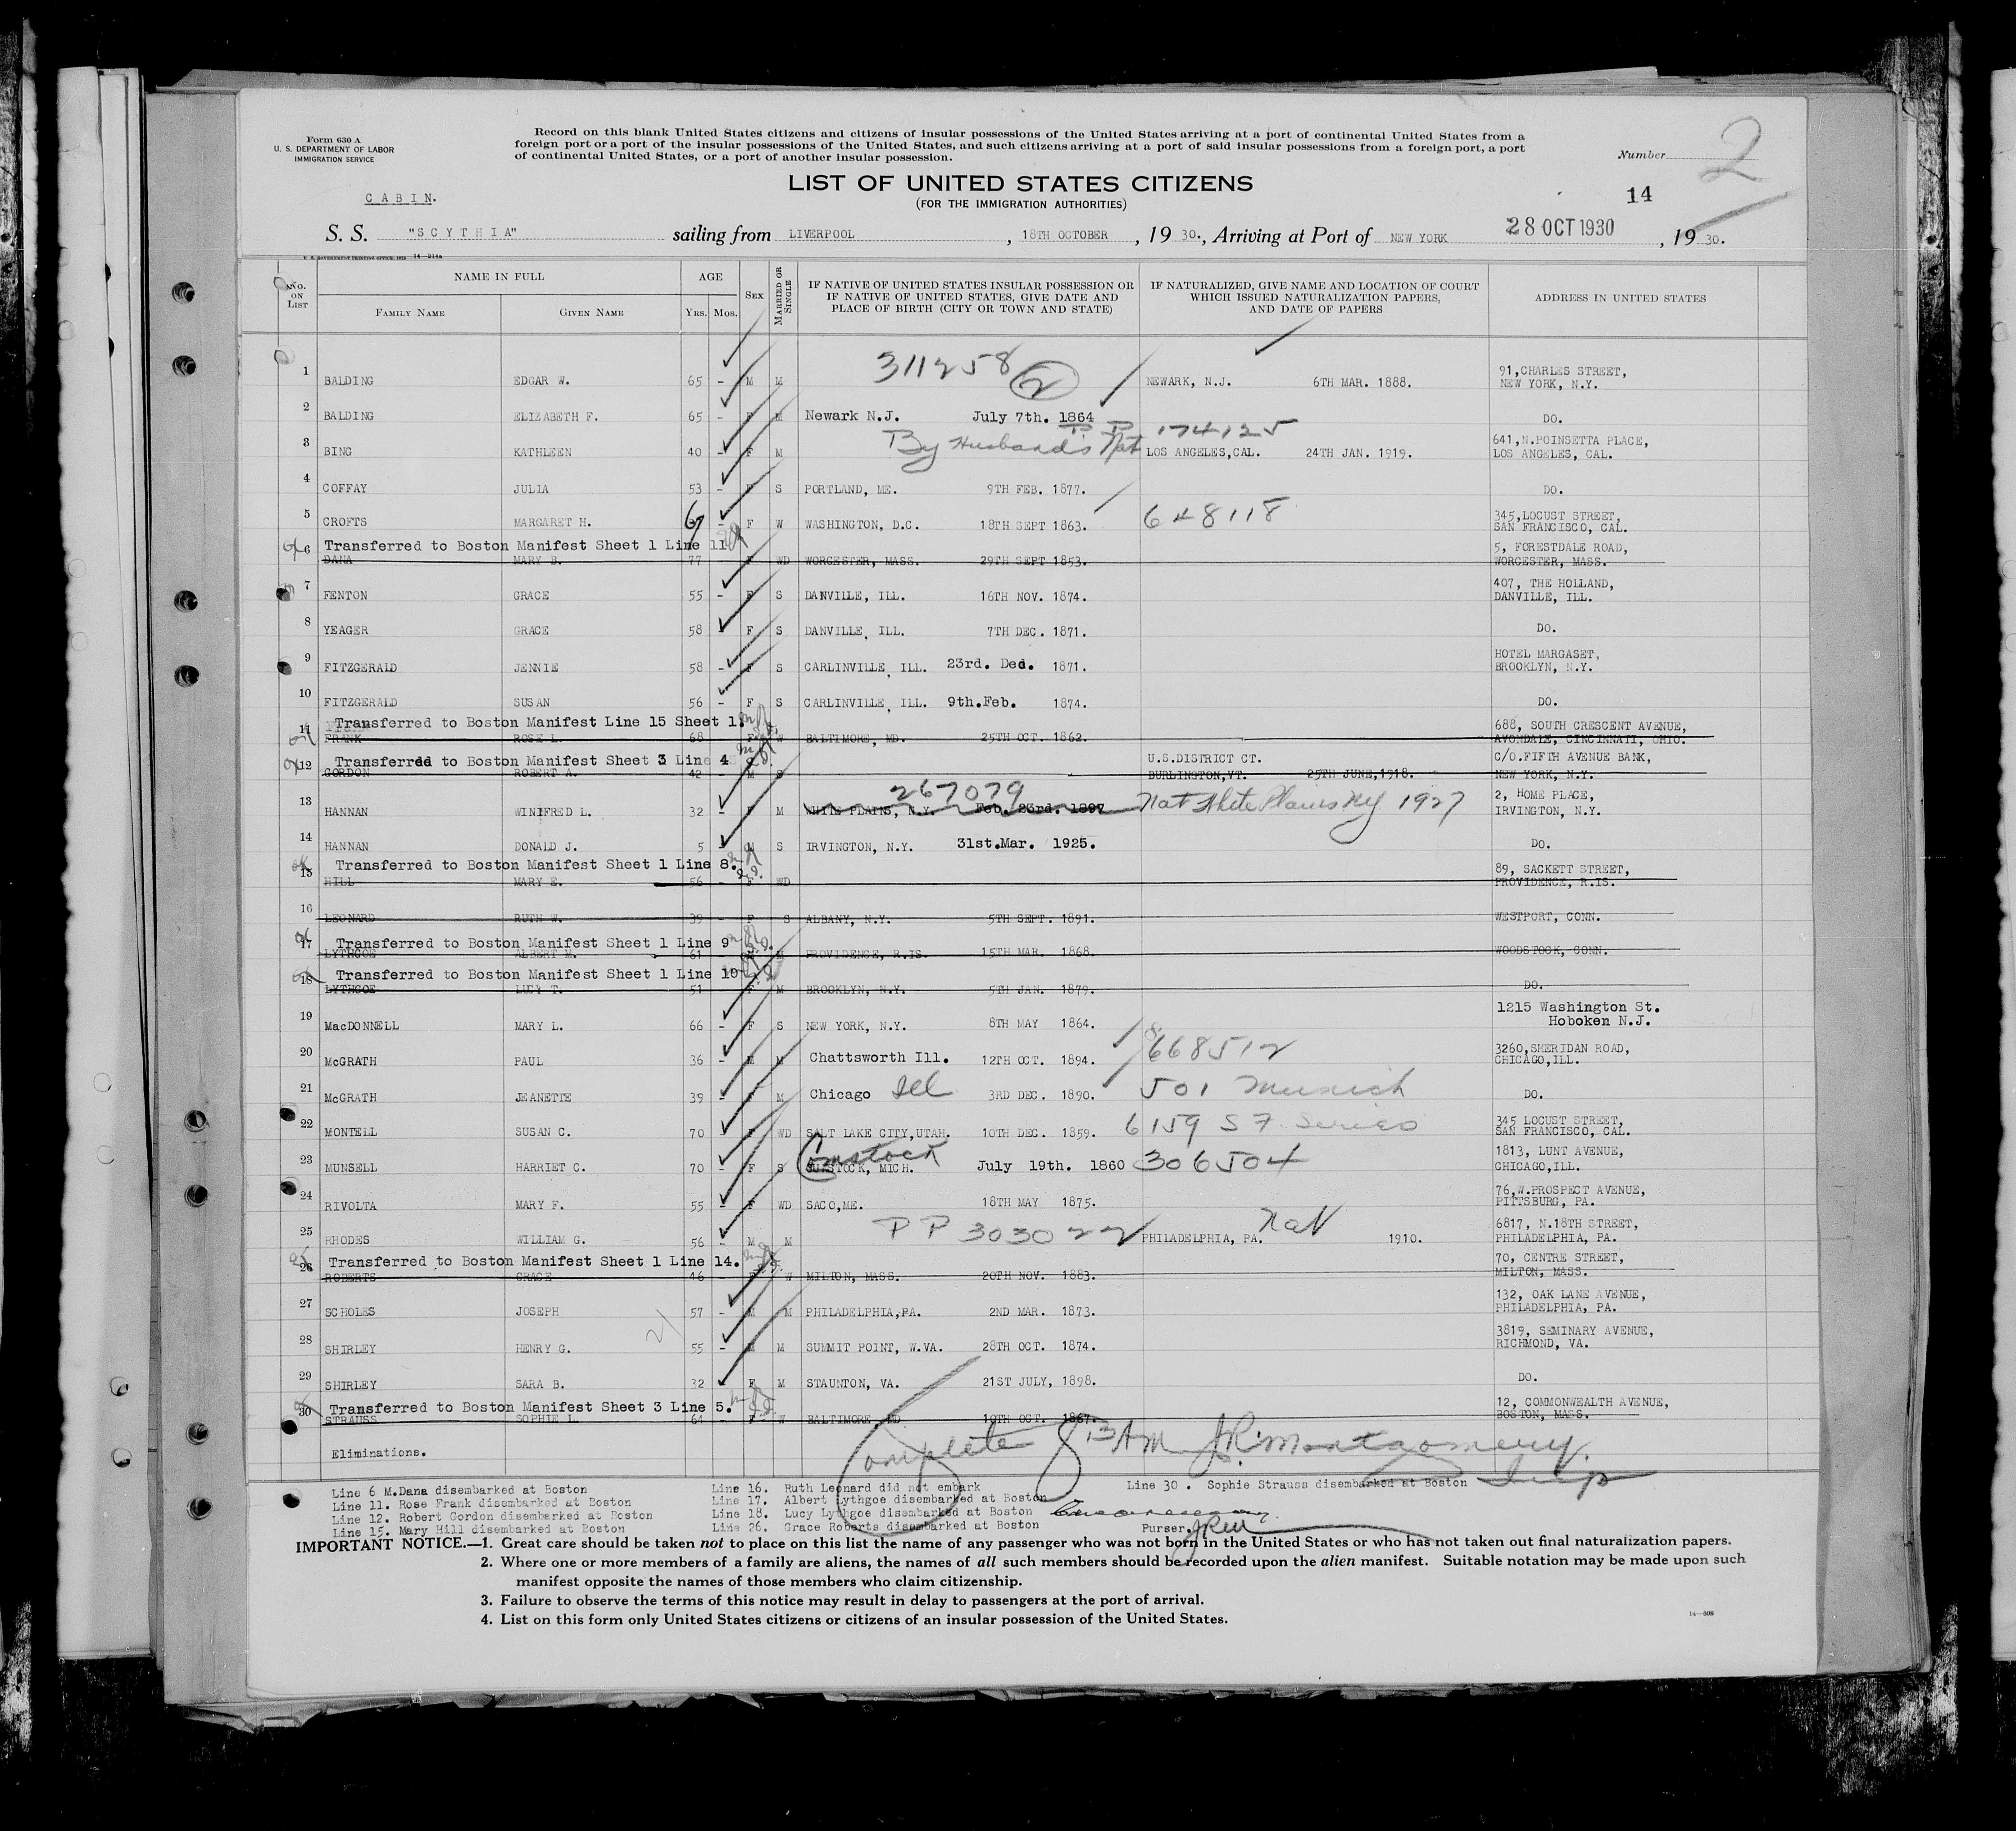 Form 630 A
U. S. DEPARTMENT OF LABOR
IMMIGRATION SERVICE
Record on this blank United States citizens and citizens of insular possessions of the United States arriving at a port of continental United States from a
foreign port or a port of the insular possessions of the United States, and such citizens arriving at a port of said insular possessions from a foreign port, a port
of continental United States, or a port of another insular possession.
Number 2
14
LIST OF UNITED STATES CITIZENS
(FOR THE IMMIGRATION AUTHORITIES)
CABIN.
S. S. "SCYTHIA" sailing from LIVERPOOL, 18TH OCTOBER, 1930., Arriving at Port of NEW YORK 28 OCT 1930, 1930.
U. S. GOVERNMENT PRINTING OFFICE: 14—214a
NO. ON LIST NAME IN FULL FAMILY NAME GIVEN NAME AGE YRS. MOS. SEX MARRIED OR SINGLE IF NATIVE OF UNITED STATES INSULAR POSSESSION OR IF NATIVE OF UNITED STATES, GIVE DATE AND PLACE OF BIRTH (CITY OR TOWN AND STATE) IF NATURALIZED, GIVE NAME AND LOCATION OF COURT WHICH ISSUED NATURALIZATION PAPERS, AND DATE OF PAPERS ADDRESS IN UNITED STATES
311258 (2)
1 BALDING EDGAR W. 65 - M M NEWARK, N.J. 6TH MAR. 1888. 91,CHARLES STREET, NEW YORK, N.Y.
2 BALDING ELIZABETH F. 65 - F M Newark N.J. July 7th. 1864 DO.
PP 174125
3 BING KATHLEEN 40 - F M By Husband's Nat LOS ANGELES,CAL. 24TH JAN. 1919. 641,N.POINSETTA PLACE, LOS ANGELES, CAL.
4 COFFAY JULIA 53 - F S PORTLAND, ME. 9TH FEB. 1877. DO.
5 CROFTS MARGARET H. 67 - F W WASHINGTON, D.C. 18TH SEPT 1863. 648118 345,LOCUST STREET, SAN FRANCISCO, CAL.
Transferred to Boston Manifest Sheet 1 Line 11
6 DANA MARY B. 77 - F WD WORCESTER, MASS. 29TH SEPT 1853. 5, FORESTDALE ROAD, WORCESTER, MASS.
7 FENTON GRACE 55 - F S DANVILLE, ILL. 16TH NOV. 1874. 407, THE HOLLAND, DANVILLE, ILL.
8 YEAGER GRACE 58 F S DANVILLE, ILL. 7TH DEC. 1871. DO.
9 FITZGERALD JENNIE 58 - F S CARLINVILLE, ILL. 23rd. Ded. 1871. HOTEL MARGASET, BROOKLYN, N.Y.
10 FITZGERALD SUSAN 56 - F S CARLINVILLE, ILL. 9th.Feb. 1874. DO.
Transferred to Boston Manifest Line 15 Sheet 1.
11 FRANK ROSE L. 68 F W BALTIMORE, MD. 25TH OCT. 1862. 688, SOUTH CRESCENT AVENUE, AVONDALE, CINCINNATI, OHIO.
Transferrdd to Boston Manifest Sheet 3 Line 4
12 GORDON ROBERT A. 42 - M S U.S.DISTRICT CT. BURLINGTON,VT. 25TH JUNE,1918. C/O.FIFTH AVENUE BANK, NEW YORK, N.Y.
267079
13 HANNAN WINIFRED L. 32 - F M WHITE PLAINS, N.Y. Feb. 23rd. 1897 Nat White Plains NY 1927 2, HOME PLACE, IRVINGTON, N.Y.
14 HANNAN DONALD J. 5 M S IRVINGTON, N.Y. 31st.Mar. 1925. DO.
Transferred to Boston Manifest Sheet 1 Line 8.
15 HILL MARY E. 56 - F WD 89, SACKETT STREET, PROVIDENCE, R.IS.
16 LEONARD RUTH W. 39 - F S ALBANY, N.Y. 5TH SEPT. 1891. WESTPORT, CONN.
Transferred to Boston Manifest Sheet 1 Line 9
17 LYTHGOE ALBERT M. 61 M M PROVIDENCE, R.IS. 15TH MAR. 1868. WOODSTOCK, CONN.
Transferred to Boston Manifest Sheet 1 Line 10
18 LYTHGOE LUCY T. 51 F M BROOKLYN, N.Y. 5TH JAN. 1879. DO.
19 MacDONNELL MARY L. 66 - F S NEW YORK, N.Y. 8TH MAY 1864. 1215 Washington St. Hoboken N.J.
20 McGRATH PAUL 36 - M M Chattsworth Ill. 12TH OCT. 1894. 668512 3260,SHERIDAN ROAD, CHICAGO,ILL.
21 McGRATH JEANETTE 39 - F M Chicago Ill 3RD DEC. 1890. 501 Munich DO.
22 MONTELL SUSAN C. 70 - F WD SALT LAKE CITY,UTAH. 10TH DEC. 1859. 6159 S F. Series 345 LOCUST STREET, SAN FRANCISCO, CAL.
23 MUNSELL HARRIET C. 70 - F S Comstock MICH. July 19th. 1860 306504 1813, LUNT AVENUE, CHICAGO,ILL.
24 RIVOLTA MARY F. 55 - F WD SACO,ME. 18TH MAY 1875. 76,W.PROSPECT AVENUE, PITTSBURG, PA.
25 RHODES WILLIAM G. 56 - M M PP 303022 PHILADELPHIA, PA. Nat 1910. 6817, N.18TH STREET, PHILADELPHIA, PA.
Transferred to Boston Manifest Sheet 1 Line 14.
26 ROBERTS GRACE 46 - F W MILTON, MASS. 20TH NOV. 1883. 70, CENTRE STREET, MILTON, MASS.
27 SCHOLES JOSEPH 57 - M M PHILADELPHIA,PA. 2ND MAR. 1873. 132, OAK LANE AVENUE, PHILADELPHIA, PA.
28 SHIRLEY HENRY G. 21 55 - M M SUMMIT POINT, W.VA. 28TH OCT. 1874. 3819, SEMINARY AVENUE, RICHMOND, VA.
29 SHIRLEY SARA B. 32 F M STAUNTON, VA. 21ST JULY, 1898. DO.
Transferred to Boston Manifest Sheet 3 Line 5.
30 STRAUSS SOPHIE L. 64 - F W BALTIMORE MD 10TH OCT. 1867. 12, COMMONWEALTH AVENUE, BOSTON, MASS.
Eliminations. Complete J.R. Montgomery. Insp
Line 6 M.Dana disembarked at Boston Line 16. Ruth Leonard did not embark Line 30 . Sophie Strauss disembarked at Boston
Line 11. Rose Frank disembarked at Boston Line 17. Albert Lythgoe disembarked at Boston
Line 12. Robert Gordon disembarked at Boston Line 18. Lucy Lythgoe disembarked at Boston
Line 15. Mary Hill disembarked at Boston Line 26. Grace Roberts disembarked at Boston Purser. JRM
IMPORTANT NOTICE.—1. Great care should be taken not to place on this list the name of any passenger who was not born in the United States or who has not taken out final naturalization papers.
2. Where one or more members of a family are aliens, the names of all such members should be recorded upon the alien manifest. Suitable notation may be made upon such
manifest opposite the names of those members who claim citizenship.
3. Failure to observe the terms of this notice may result in delay to passengers at the port of arrival.
4. List on this form only United States citizens or citizens of an insular possession of the United States.
14—608